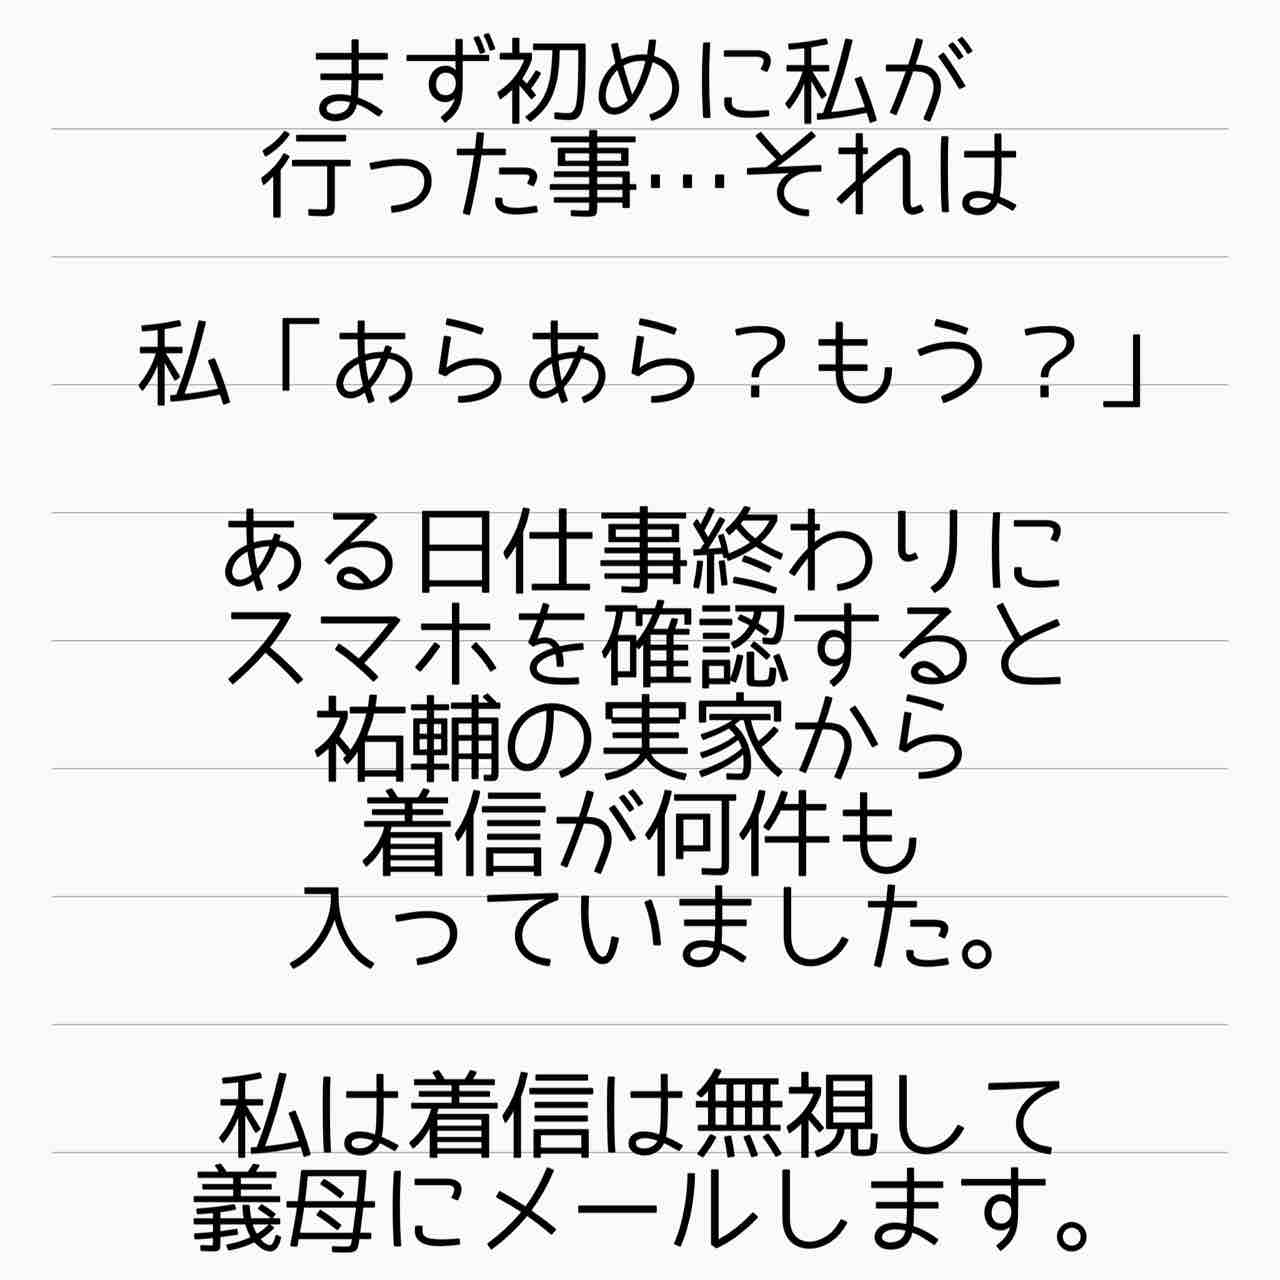 まず初めに私が
行った事…それは
私「あらあら？もう？」
ある日仕事終わりに
スマホを確認すると
祐輔の実家から
着信が何件も
入っていました。
私は着信は無視して
義母にメールします。